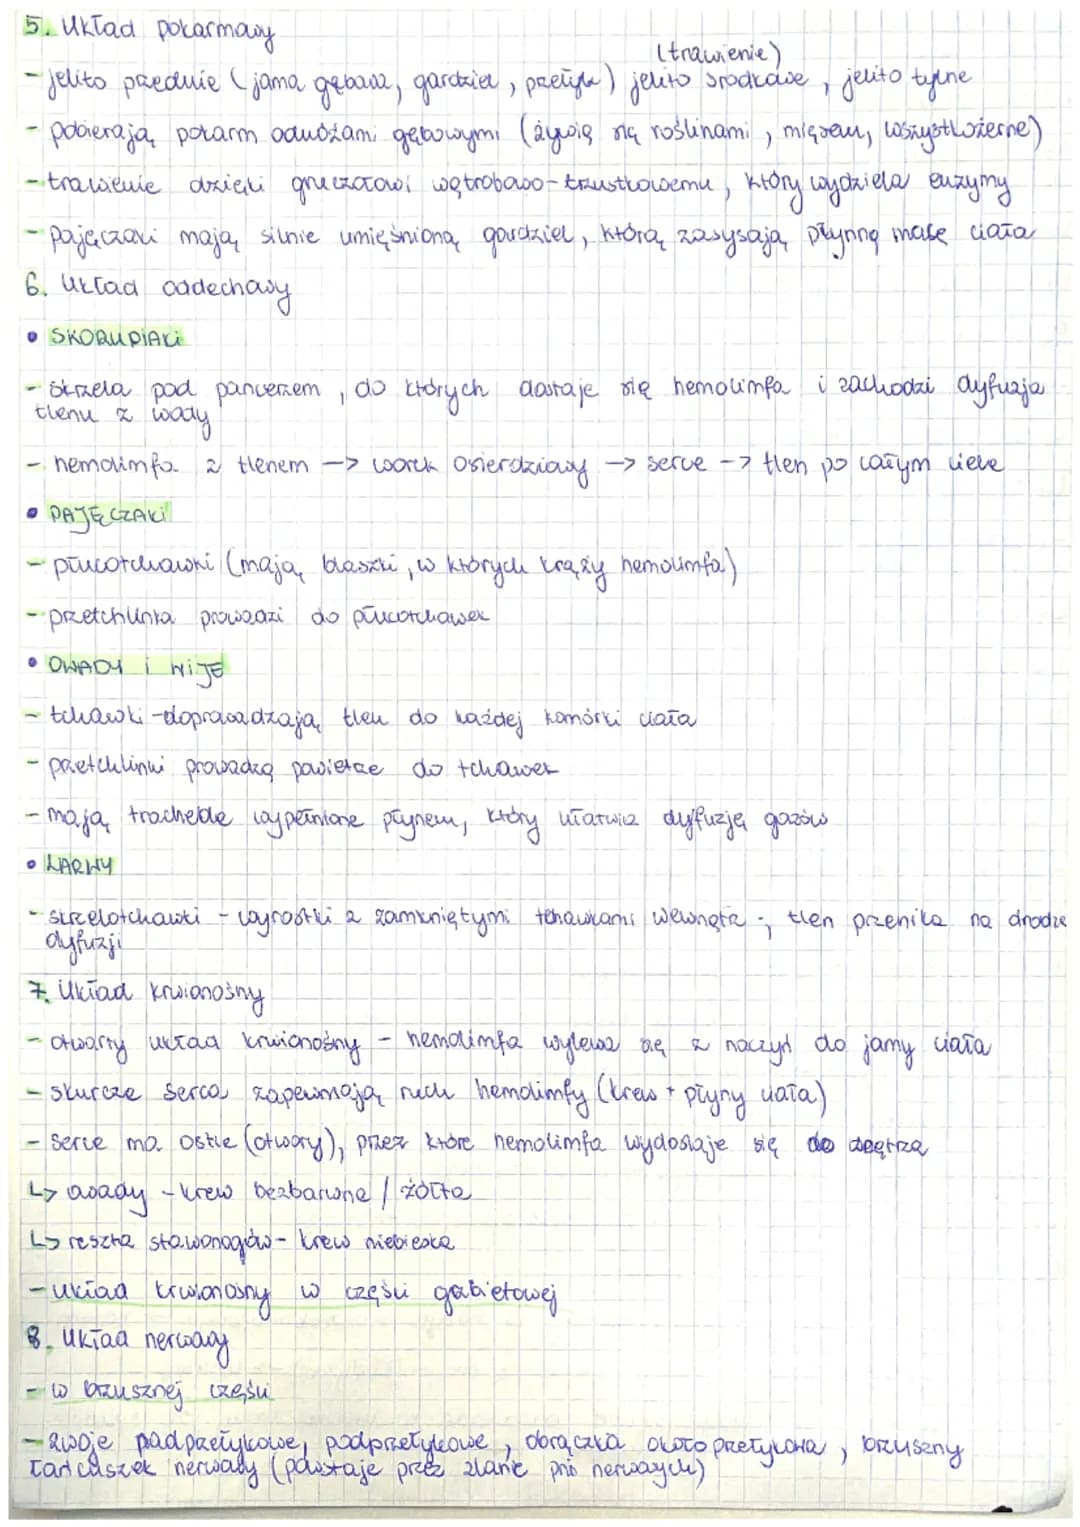 5. Układ pokarmowy
(trawienie)
- jelito przednie (jama gębowa, gardziel, przełyk) jelito środkowe, jelito tylne
- pobierają pokarm odnóżami gębowymi (żywią się roślinami, mięsem, wszystkożerne)
- trawienie dzięki gruczołowi wątrobowo-trzustkowemu, który wydziela enzymy
- pajęczaki mają silnie umięśnioną gardziel, którą zasysają płynną masę ciała
6. Układ oddechowy
• SKORUPIAKI
- skrzela pod pancerzem, do których dostaje się hemolimfa i zachodzi dyfuzja
tlenu z wody
- hemolimfa z tlenem -> worek osierdziowy -> serce -> tlen po całym ciele
• PAJĘCZAKI
- płucotchawki (mają blaszki, w których krąży hemolimfa)
- przetchlinka prowadzi do płucotchawek
• OWADY i WIJE
- tchawki - doprowadzają tlen do każdej komórki ciała
- przetchlinki prowadzą powietrze do tchawek
- mają tracheole wypełnione płynem, który ułatwia dyfuzję gazów
• LARWY
- skrzelotchawki - wyrostki z zamkniętymi tchawkami wewnątrz ; tlen przenika na drodze
dyfuzji
7. Układ krwionośny
- otwarty układ krwionośny - hemolimfa wylewa się z naczyń do jamy ciała
- skurcze serca zapewniają ruch hemolimfy (krew + płyny ciała)
- serce ma ostie (otwory), przez które hemolimfa wydostaje się do wnętrza
↳ owady - krew bezbarwna / żółta
↳ reszta stawonogów - krew niebieska
- układ krwionośny w części grzbietowej
8. Układ nerwowy
- w brzusznej części
- zwoje nadprzełykowe, podprzełykowe, obrączka okołoprzełykowa, brzuszny
łańcuszek nerwowy (powstaje przez zlanie pni nerwowych)